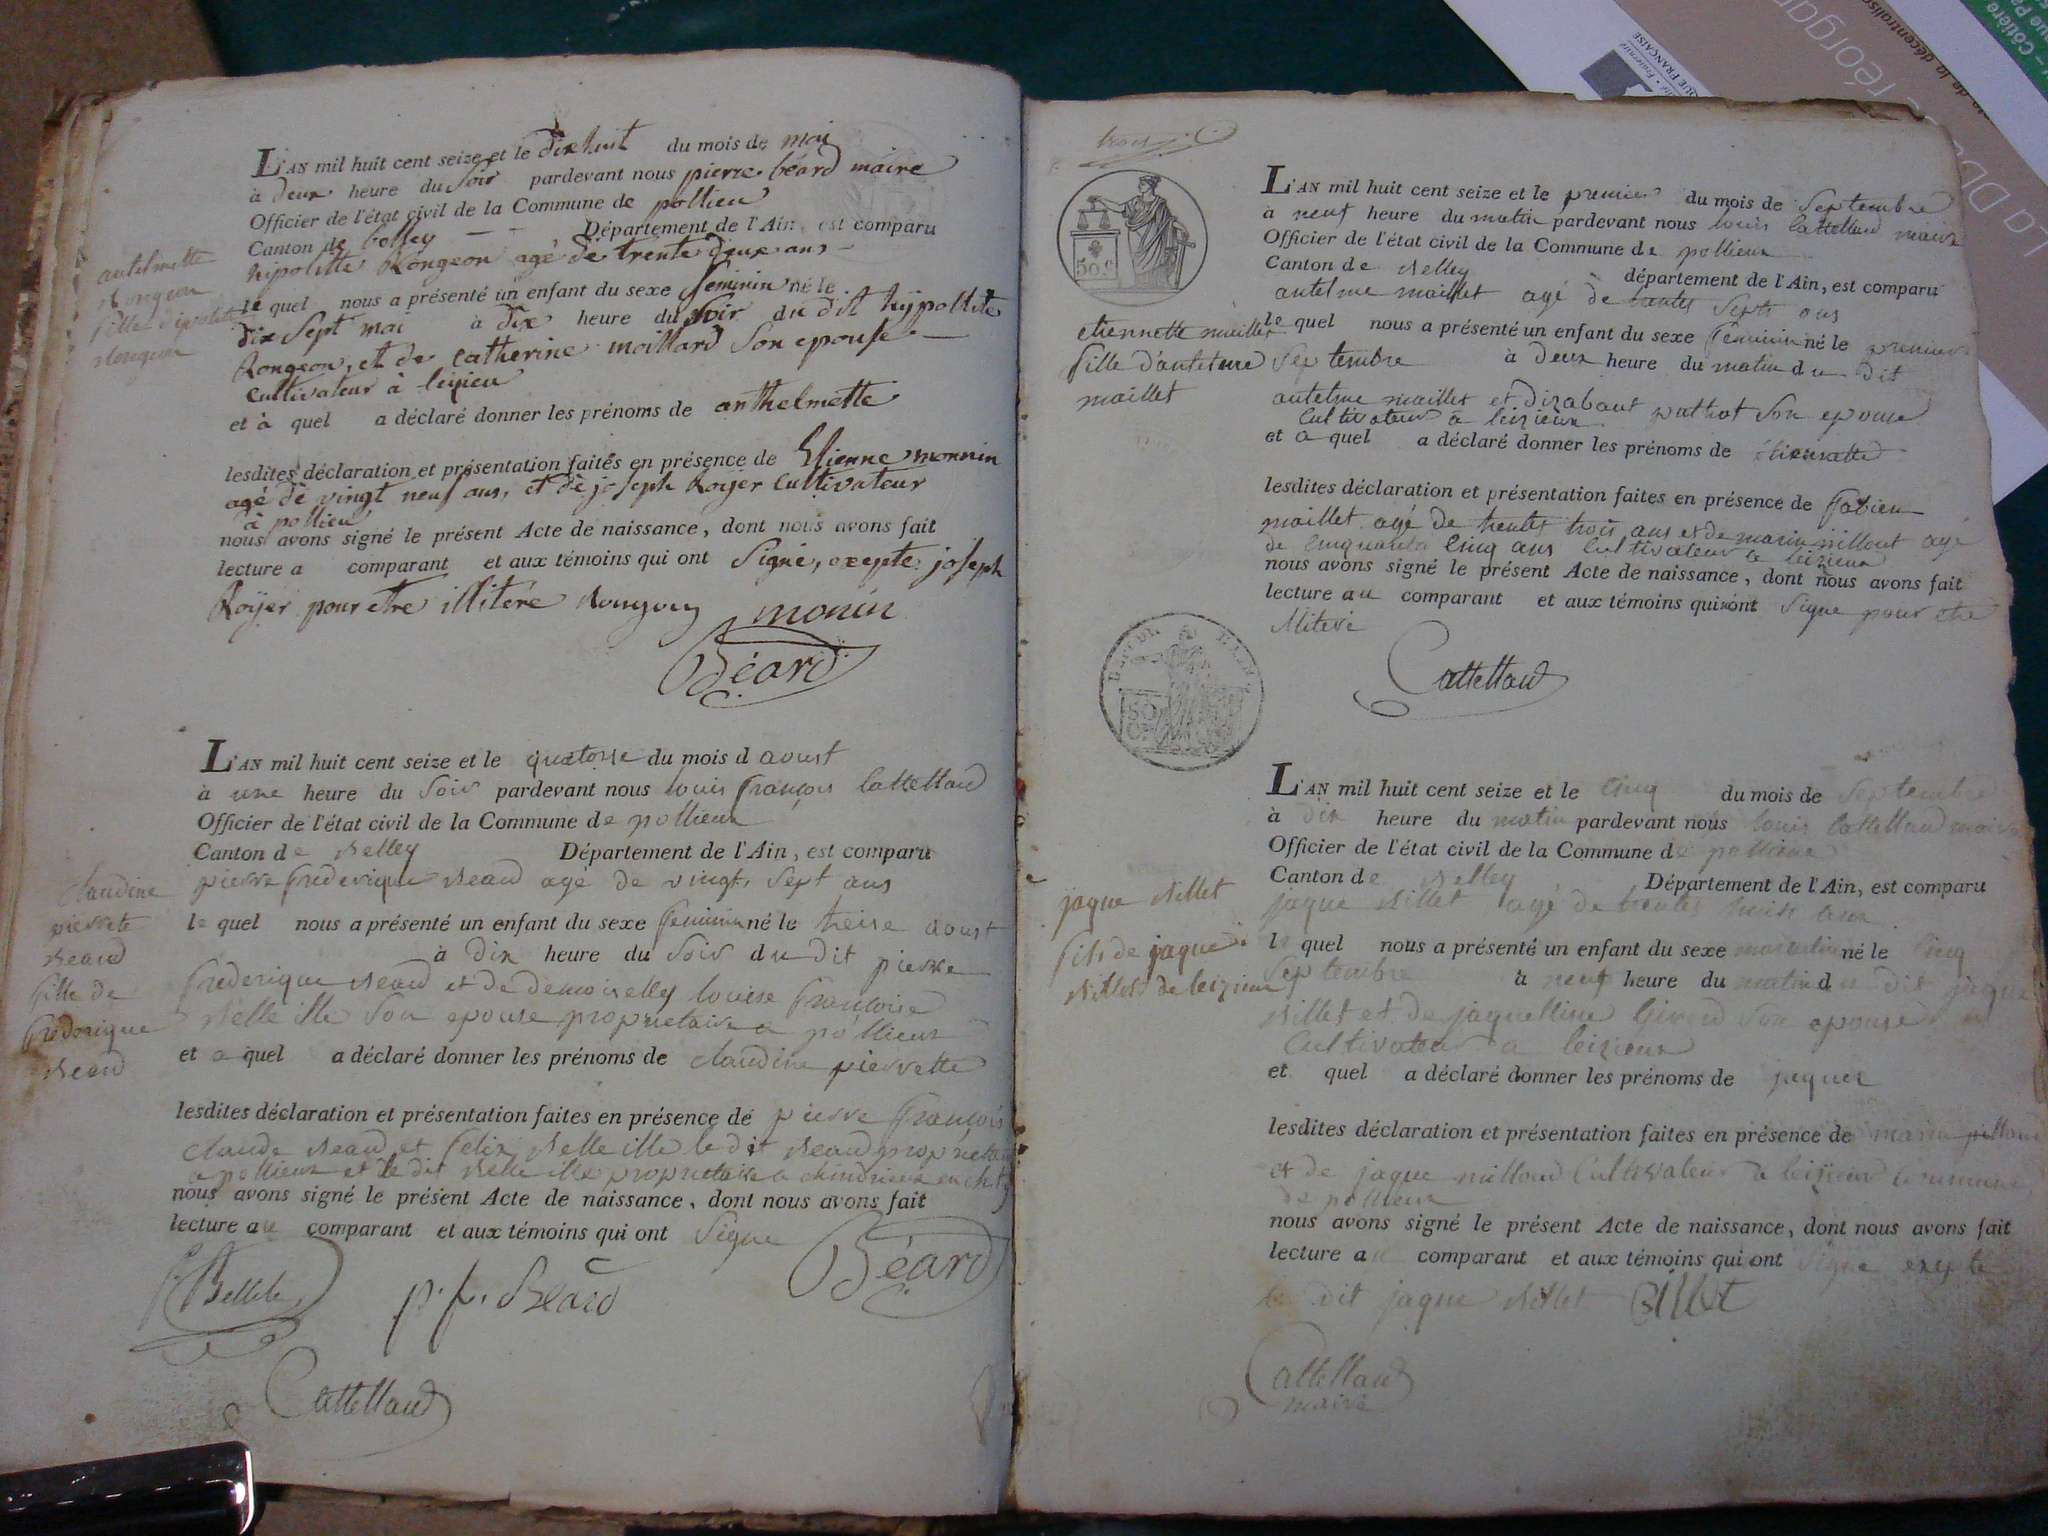 L'AN mil huit cent seize et le dixhuit du mois de mai
à deux heure du soir pardevant nous pierre béard maire
Officier de l'état civil de la Commune de pollieu
Canton de belley Département de l'Ain, est comparu
hipolitte Rongeon agé de trente deux ans
le quel nous a présenté un enfant du sexe feminin né le
dix sept mai à dix heure du soir du dit hypollite
Rongeon, et de catherine maillard son epouse
cultivateur à leyieu
et à quel a déclaré donner les prénoms de anthelmette
lesdites déclaration et présentation faites en présence de Etienne monnin
agé de vingt neuf ans, et de joseph Royer cultivateur
à pollieu
nous avons signé le présent Acte de naissance, dont nous avons fait
lecture a comparant et aux témoins qui ont signé, exepté joseph
Royer pour etre illitéré Rongeon monin
Béard
antelmette
Rongeon
fille d'ipolite
Rongeon
L'AN mil huit cent seize et le quatorse du mois d aoust
à une heure du soir pardevant nous louis françois Cattelland
Officier de l'état civil de la Commune de pollieux
Canton de Belley Département de l'Ain, est comparu
pierre frederique Beard agé de vingt sept ans
le quel nous a présenté un enfant du sexe feminin né le treise aoust
à dix heure du soir du dit pierre
frederique Beard et de demoiselle louise françoise
Belle ille son epouse propriétaire a pollieux
et a quel a déclaré donner les prénoms de claudine pierrette
lesdites déclaration et présentation faites en présence de pierre françois
claude Beard et felix Belle ille le dit Beard propriétaire
a pollieux et le dit Belle ille propriétaire a chindrieux en
nous avons signé le présent Acte de naissance, dont nous avons fait
lecture au comparant et aux témoins qui ont signe
Béard
p. f. Béard
Cattelland
claudine
pierrete
Beard
fille de
frederique
Beard
50 C
L'AN mil huit cent seize et le premier du mois de septembre
à neuf heure du matin pardevant nous louis Cattelland maire
Officier de l'état civil de la Commune de pollieux
Canton de Belley département de l'Ain, est comparu
antelme maillet agé de trentes septs ans
le quel nous a présenté un enfant du sexe feminin né le premier
septembre à deux heure du matin du dit
antelme maillet et son epouse
cultivateur a leizieux
et a quel a déclaré donner les prénoms de etiennette
lesdites déclaration et présentation faites en présence de fabien
maillet agé de trentes trois ans et de marin millout agé
de cinquante cinq ans cultivateur a leizieux
nous avons signé le présent Acte de naissance, dont nous avons fait
lecture au comparant et aux témoins qui ont signe pour etre
illiteré
Cattelland
etiennette maillet
fille d'antelme
maillet
L'AN mil huit cent seize et le cinq du mois de septembre
à dix heure du matin pardevant nous louis Cattelland maire
Officier de l'état civil de la Commune de pollieux
Canton de Belley Département de l'Ain, est comparu
jaque Billet agé de trentes
le quel nous a présenté un enfant du sexe masculin né le cinq
septembre à neuf heure du matin du dit jaque
Billet et de jaquelline Giroud son epouse
cultivateur a leizieux
et quel a déclaré donner les prénoms de jaques
lesdites déclaration et présentation faites en présence de marin
et de jaque milloud cultivateur a leizieux commune
de pollieux
nous avons signé le présent Acte de naissance, dont nous avons fait
lecture au comparant et aux témoins qui ont signe exepte
le dit jaque Billet
Cattelland
maire
jaque Billet
fils de jaque
Billet de leizieux